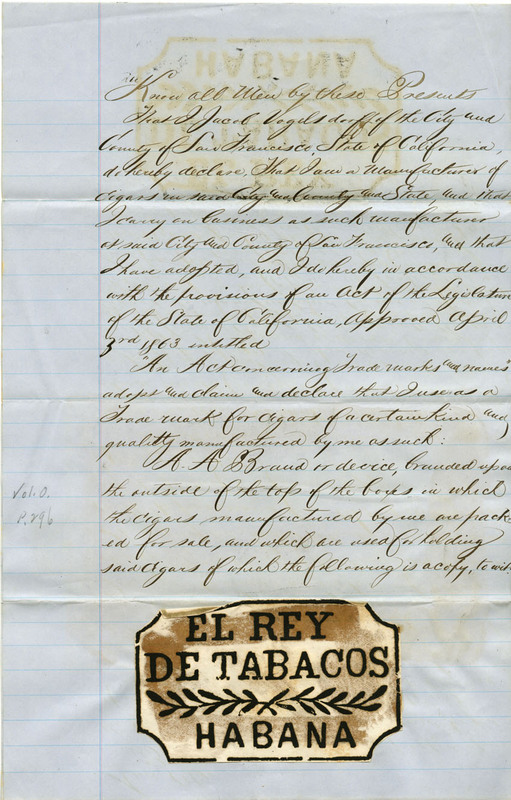 Know all Men by these Presents
That I Jacob Vogelsdorff of the City and
County of San Francisco, State of California,
do hereby declare, That I am a Manufacturer of
Cigars in said City and County and State, and that
I carry on business as such manufacturer
at said City and County of San Francisco, and that
I have adopted, and I do hereby in accordance
with the provisions of an Act of the Legislature
of the State of California, Approved April
3rd 1863 entitled
"An Act concerning Trade marks and names"
adopt and claim and declare that I use as a
Trade mark for cigars of a certain kind and
quality manufactured by me as such:
A. A Brand or device, branded upon
the outside of the top of the boxes in which
the cigars manufactured by me are pack-
ed for sale, and which are used for holding
said cigars of which the following is a copy, to wit:
Vol. 0.
P. 296
EL REY
DE TABACOS
HABANA